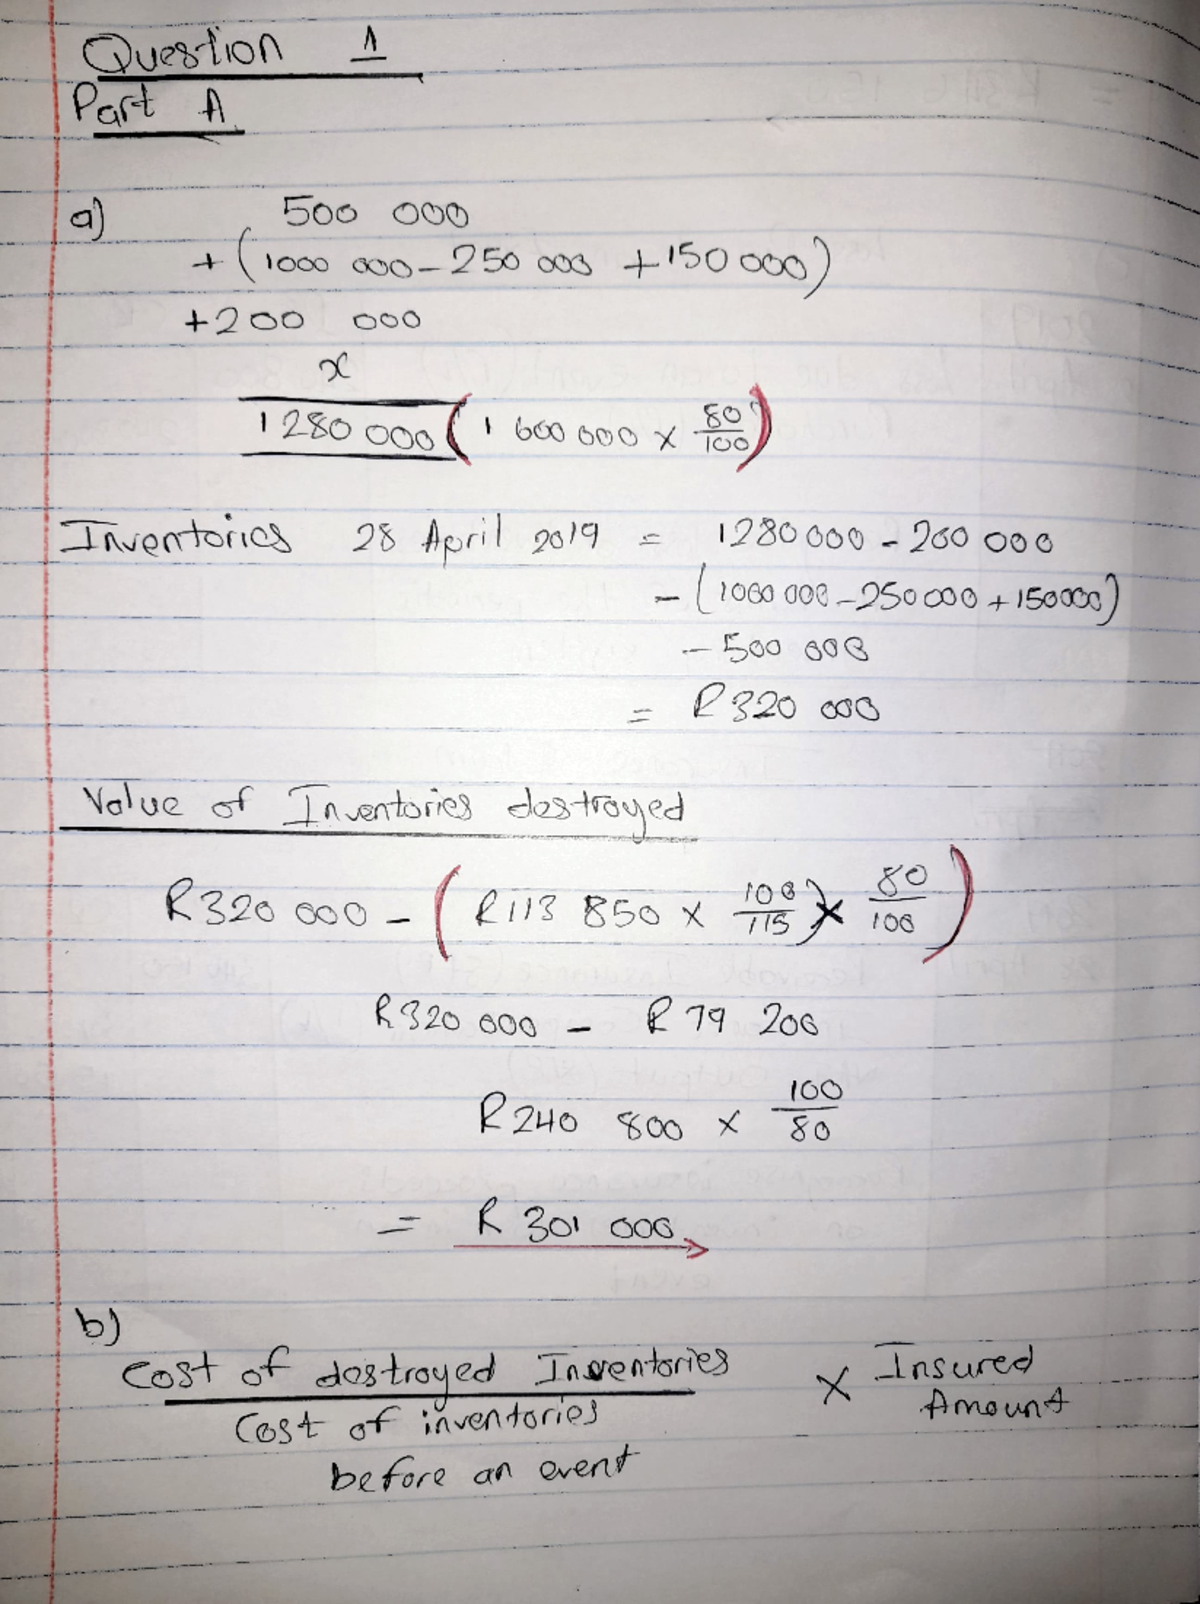 Question 1
Part A
a) 500 000
+ (1000 000 - 250 000 + 150 000)
+200 000
x
1 280 000 (1 600 000 x 80/100)
Inventories 28 April 2019 = 1280 000 - 200 000
- (1000 000 - 250 000 + 150000)
- 500 000
= R320 000
Value of Inventories destroyed
R320 000 - (R113 850 x 100/115) x 80/100)
R320 000 - R79 200
R240 800 x 100/80
= R 301 000
b)
Cost of destroyed Inventories x Insured
Cost of inventories Amount
before an event